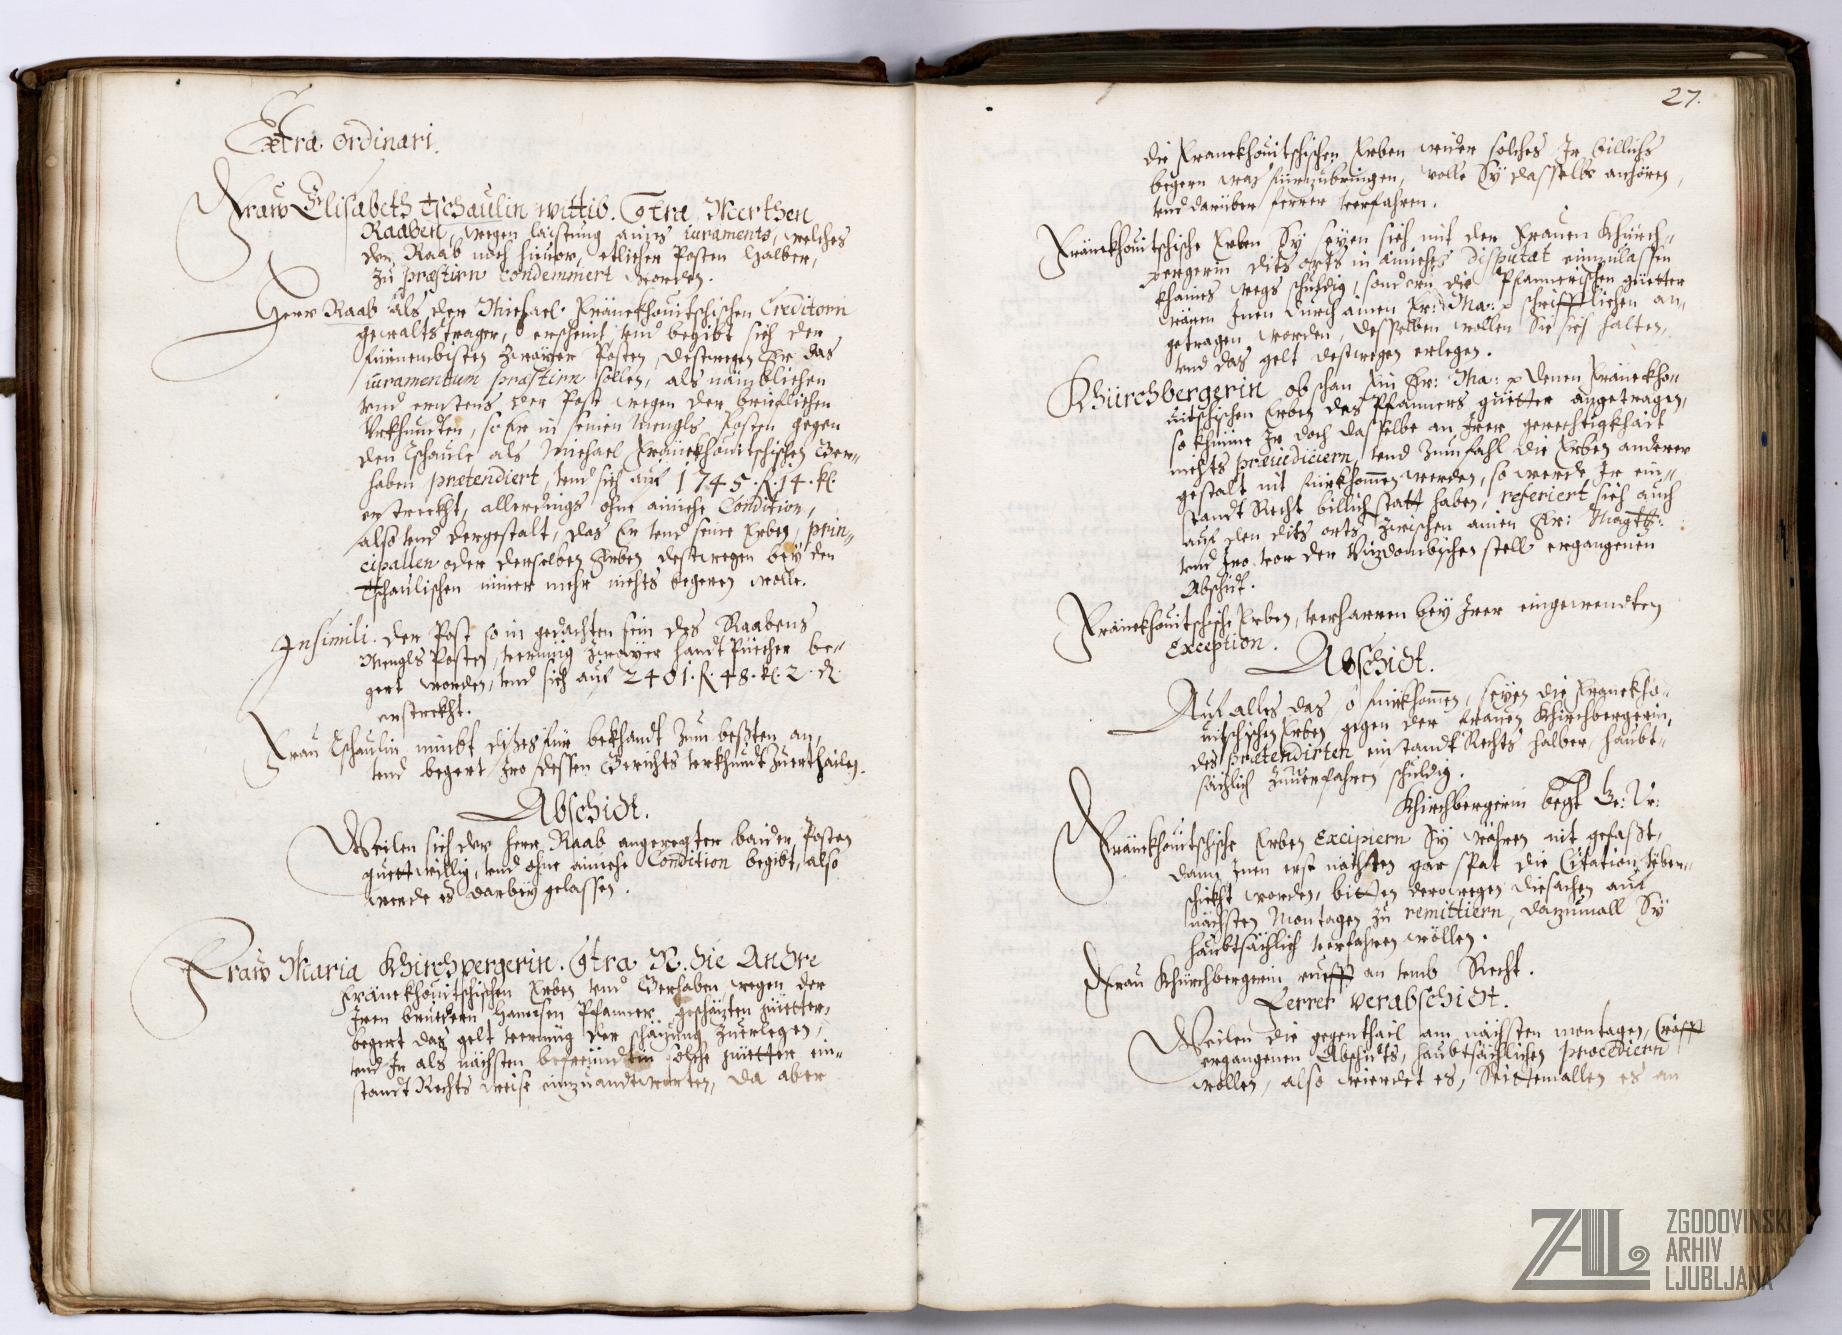 Extra ordinari.
Fraw Elisabeth Tschaulin wittib. Contra Merthen
Raaben, wegen laistung aines iuraments, welches
der Raab noch hieuor, etlicher Posten halber,
zu præstirn condemniert worden.
Herr Raab als der Michael Fränekhouitschischen Creditorn
gewaltstrager, erscheint vnd begibt sich der
fürnembisten zwayer Posten, destwegen Er das
iuramentum præstirn sollen, als nämblichen
vnd erstens der Post wegen der brieflichen
Vrkhunden, so Er in seinen Mengls Posten gegen
den Tschaule als Michael Fränekhouitschischen Ger-
haben prætendiert, vnd sich auf 1745. f. 14. kr.
erstreckht, allerdings ohne ainiche Condition,
also vnd dergestalt, das Er vnd seine Erben, prin-
cipallen oder derselben Erben destwegen bey den
Tschaulischen nimer mehr nichts begeren wolle.
In simili. der Post so in gedachten sein des Raabens
Mengls Posten, vermüg zwayer Handt Püecher be-
gert worden, vnd sich auf 2401. f. 48. kr. 2. d.
erstreckht.
Frau Tschaulin nimbt dises für bekhandt zum bessten an,
vnd begert Iro dessen Gerichts vrkhundt zuerthailen.
Abschidt.
Weilen sich der Herr Raab angeregter baider Posten
guetwillig, vnd ohne ainiche Condition begibt, also
werde es darbey gelassen.
Fraw Maria Khirchpergerin. Contra N. die Andre
Fränekhouitschischen Erben vnd Gerhaben wegen der
Iren bruedern Hannsen Pfanner geschäzten güetter,
begert das gelt vermüg der schäzung zuerlegen,
vnd Ir als nächsten befreündtin solche güetter ein-
standt Rechts weise einzuandtworten, da aber
27.
die Franekhouitschischen Erben wider solches Ir billichs
begern was fürzubringen, wolle Sy dasselbe anhören,
vnd darüber ferrer verfahren.
Fränekhouitschische Erben Sy seyen sich mit der Frauen Khürch-
pergerin dits orts in ainiches Disputat einzulassen
khaines wegs schuldig, sondern die Pfannerischen güetter
wären Inen durch ainen Er: Ma: schrifftlichen an-
getragen worden, desselben wollen Sie sich halten,
vnd das gelt destwegen erlegen.
Khürchbergerin obschan Ein Er: Ma: denen Fränekho-
uitschischen Erben des Pfanners güetter angetragen,
so khinne Ir doch dasselbe an Irer gerechtigkhait
nichts præiudiciern, vnd zum fahl die Erben anderer
gestalt nit fürkhommen werden, so werde Ir ein-
standt Recht billich statt haben, referiert sich auch
auf den dits orts zwischen ainen Er: Magtt:
vnd Iro vor der Vizdombischen stell ergangenen
Abschidt.
Fränekhouitschische Erben, verharren bey Irer eingewendten
Exception.
Abschidt.
Auf alles das so fürkhommen, seyen die Franekho-
uitschischen Erben gegen der Frauen Khirchbergerin,
des prætendirten einstandt Rechts halber, haubt-
sächlich zuuerfahren schuldig.
Khirchbergerin begt G: Ur:
Fränekhouitschische Erben Excipiern Sy währen nit gefasst,
dann Inen erst nächten gar spat die Citation yber-
schickht worden, bitten derowegen die sachen auf
nächsten Montagen zu remittiern, dazumall Sy
haubtsächlich verfahren wöllen.
Frau Khürchbergerin ruefft an vmb Recht.
Ferrer verabschidt.
Weilen die gegenthail am nächsten montagen, Crafft
ergangenen Abschidts, haubtsächlichen procediern
wollen, also wierdet es, Seittemallen es an
ZAL ZGODOVINSKI
ARHIV
LJUBLJANA